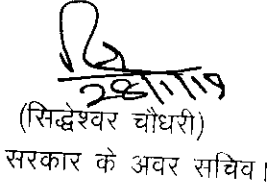 28/11/19
(सिद्धेश्वर चौधरी)
सरकार के अवर सचिव।